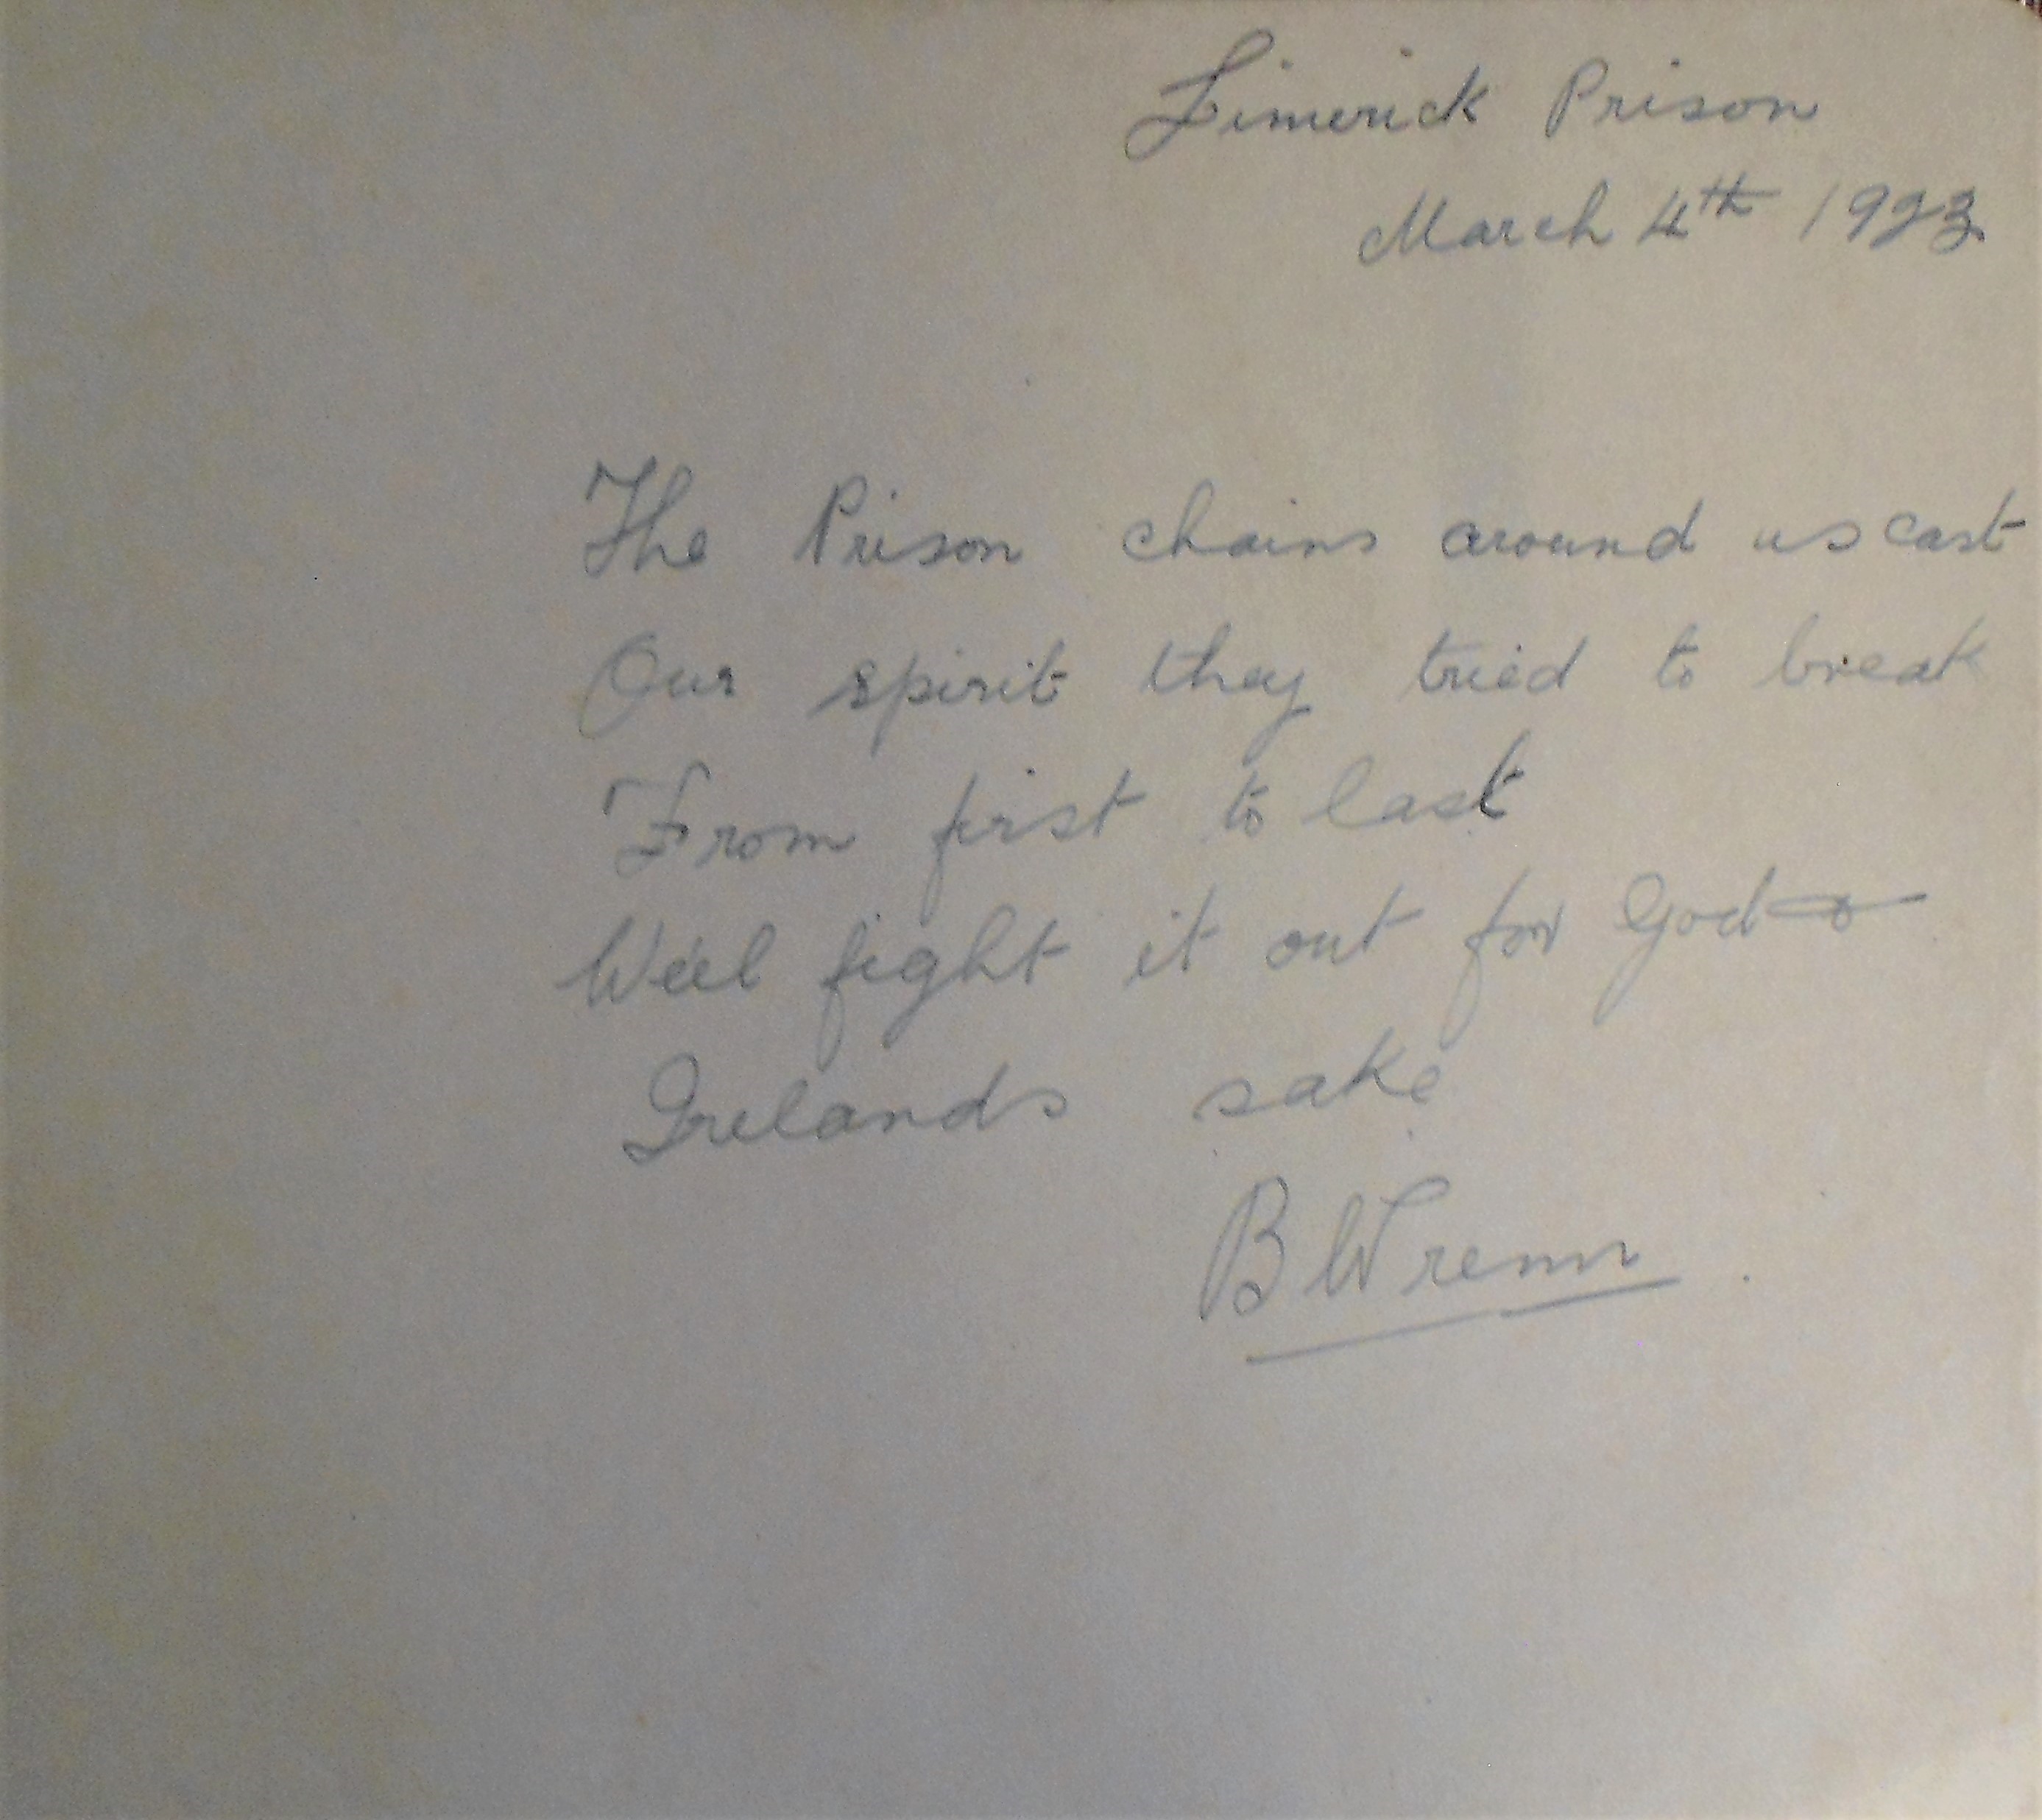 Limerick Prison
March 4th 1923
The Prison chains around us cast
Our spirit they tried to break
From first to last
We'el fight it out for God &
Irelands sake
B Wrenn